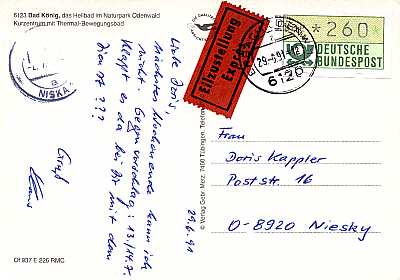 6123 Bad König, das Heilbad im Naturpark Odenwald
Kurzentrum mit Thermal-Bewegungsbad
Liebe Doris,
nächstes Wochenende kann ich
nicht. Gegenvorschlag: 13./14.7.
Klappt es da bei Dir mit dem
Dienst ???
Gruß
29.6.91
NISKA
Eilzustellung
Exprès
29.-6.91
6120
*260
DEUTSCHE
BUNDESPOST
© Verlag Gebr. Metz, 7400 Tübingen,
Frau
Doris Kappler
Poststr. 16
O-8920 Niesky
DI 937 E 226 RMC